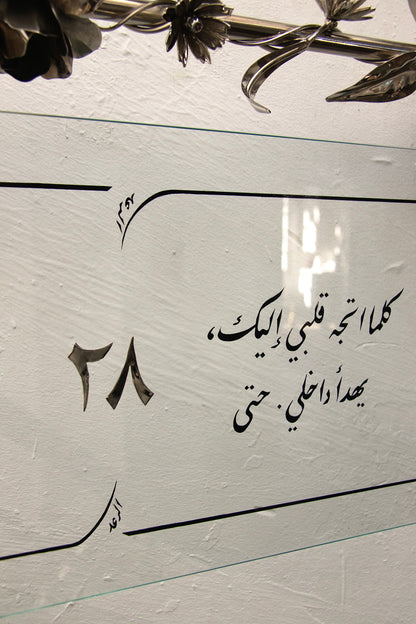 كلما اتجه قلبي إليك،
يهدأ داخلي. حتى
٢٨
الرعد